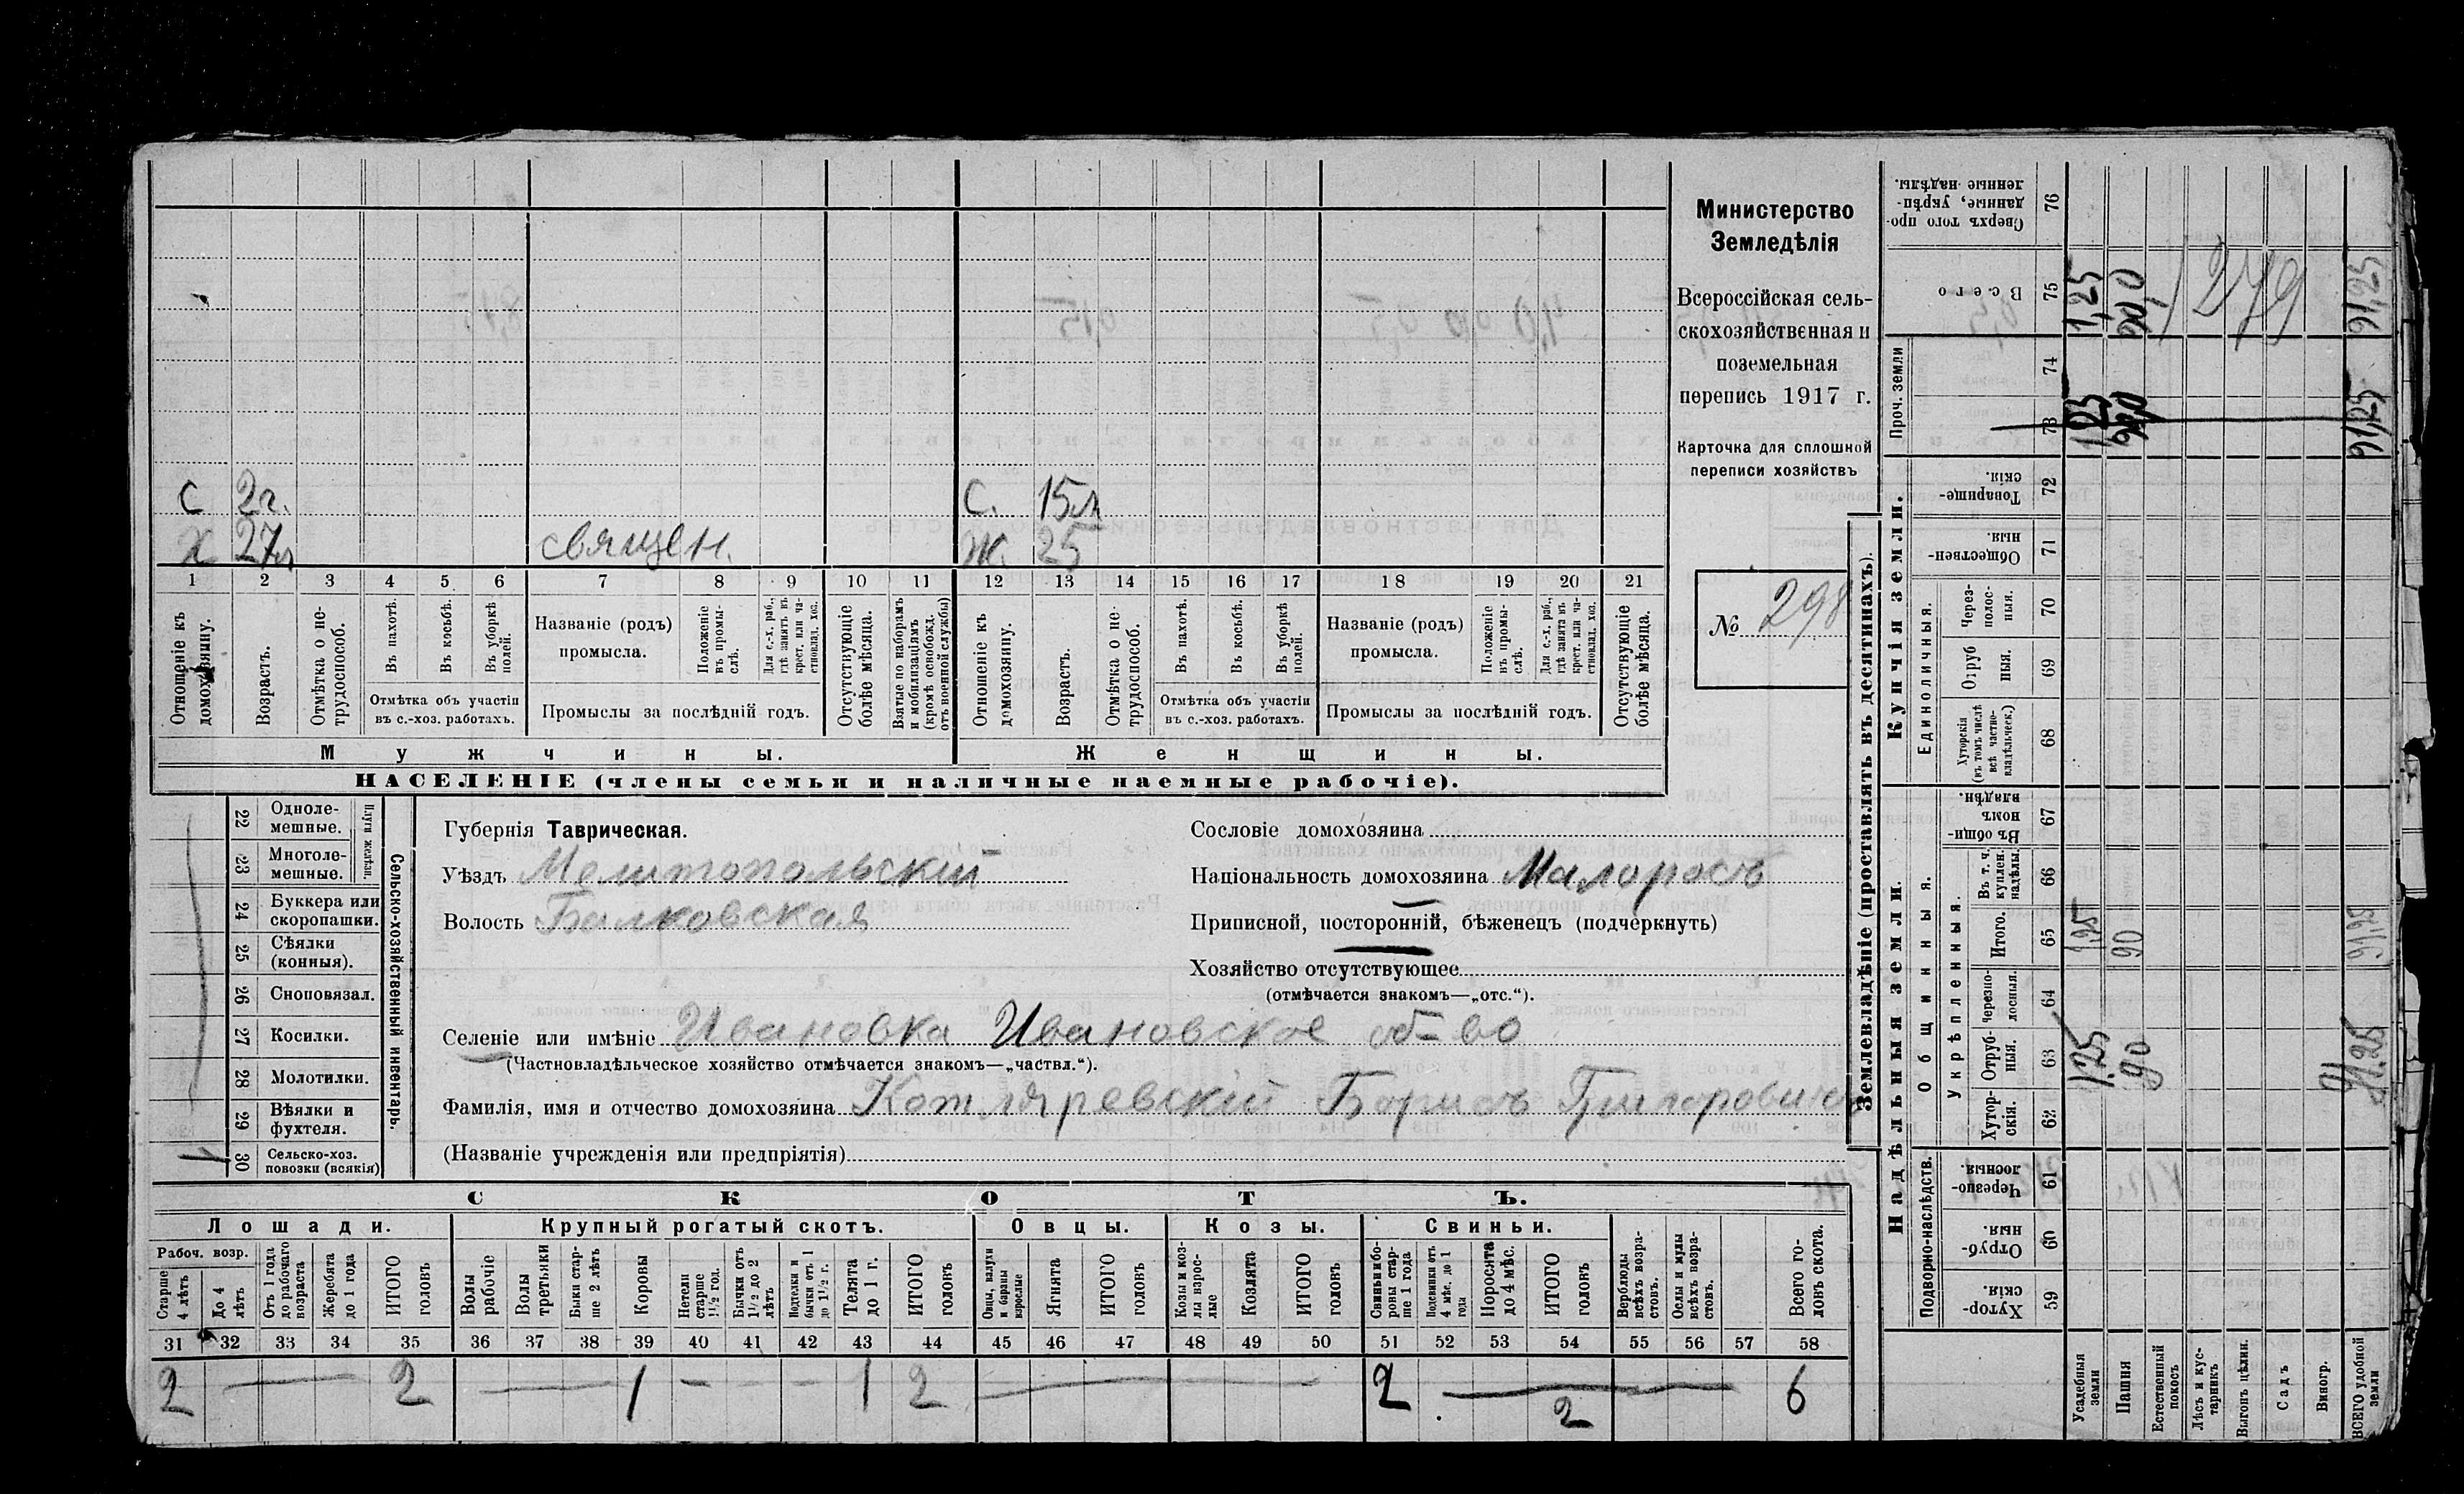 С 2г. С. 15л
Х 27л священ. Ж. 25
1 2 3 4 5 6 7 8 9 10 11 12 13 14 15 16 17 18 19 20 21
Отношеніе къ домохозяину.
Возрастъ.
Отмѣтка о не-
трудоспособ.
Въ пахотѣ.
Въ косьбѣ.
Въ уборкѣ
полей.
Отмѣтка объ участіи
въ с.-хоз. работахъ.
Названіе (родъ)
промысла.
Положеніе
въ промы-
слѣ.
Для с.-х. раб.,
гдѣ занятъ въ
крест. или ча-
стновлад. хоз.
Промыслы за послѣдній годъ.
Отсутствующіе
болѣе мѣсяца.
Взятые по наборамъ
и мобилизаціямъ
(кромѣ освобожд.
отъ военной службы)
Отношеніе къ
домохозяину.
Возрастъ.
Отмѣтка о не-
трудоспособ.
Въ пахотѣ.
Въ косьбѣ.
Въ уборкѣ
полей.
Отмѣтка объ участіи
въ с.-хоз. работахъ.
Названіе (родъ)
промысла.
Положеніе
въ промы-
слѣ.
Для с.-х. раб.,
гдѣ занята въ
крест. или ча-
стновлад. хоз.
Промыслы за послѣдній годъ.
Отсутствующіе
болѣе мѣсяца.
Мужчины. Женщины.
НАСЕЛЕНІЕ (члены семьи и наличные наемные рабочіе).
Министерство
Земледѣлія
Всероссійская сель-
скохозяйственная и
поземельная
перепись 1917 г.
Карточка для сплошной
переписи хозяйствъ
№ 298
Сельско-хозяйственный инвентарь.
Плуги желѣзн.
22 Одноле-
мешные.
23 Многоле-
мешные.
24 Буккера или
скоропашки.
25 Сѣялки
(конныя).
26 Сноповязал.
27 Косилки.
28 Молотилки.
29 Вѣялки и
фухтеля.
1 30 Сельско-хоз.
повозки (всякія)
Губернія Таврическая.
Уѣздъ Мелитопольскій
Волость Балковская
Сословіе домохозяина
Національность домохозяина Малоросъ
Приписной, посторонній, бѣженецъ (подчеркнуть)
Хозяйство отсутствующее
(отмѣчается знакомъ—„отс.“).
Селеніе или имѣніе Ивановка Ивановское об-во
(Частновладѣльческое хозяйство отмѣчается знакомъ—„частвл.“).
Фамилія, имя и отчество домохозяина Котляревскій Борисъ Григоровичъ
(Названіе учрежденія или предпріятія)
СКОТЪ.
Лошади. Крупный рогатый скотъ. Овцы. Козы. Свиньи.
Рабоч. возр.
Старше
4 лѣтъ
До 4
лѣтъ
Отъ 1 года
до рабочаго
возраста
Жеребята
до 1 года
ИТОГО
головъ
Волы
рабочіе
Волы
третьяки
Быки стар-
ше 2 лѣтъ
Коровы
Нетели
старше
1½ год.
Бычки отъ
1½ до 2
лѣтъ
Подтелки и
бычки отъ 1
до 1½ г.
Телята
до 1 г.
ИТОГО
головъ
Овцы, валухи
и бараны
взрослые
Ягнята
ИТОГО
головъ
Козы и коз-
лы взрос-
лые
Козлята
ИТОГО
головъ
Свиньи и бо-
ровы стар-
ше 1 года
Подсвинки отъ
4 мѣс. до 1
года
Поросята
до 4 мѣс.
ИТОГО
головъ
Верблюды
всѣхъ возра-
стовъ.
Ослы и мулы
всѣхъ возра-
стовъ.
Всего го-
ловъ скота.
31 32 33 34 35 36 37 38 39 40 41 42 43 44 45 46 47 48 49 50 51 52 53 54 55 56 57 58
2 — 2 — 1 — - - 1 2 — 2 — 2 — 6
Землевладѣніе (проставлять въ десятинахъ).
Надѣльныя земли. Купчія земли. Проч. земли
Подворно-наслѣдств.
Общинныя.
Укрѣпленныя.
Единоличныя.
Хутор-
скія. 59
Отруб-
ныя. 60
Черезпо-
лосныя. 61
Хутор-
скія. 62
Отруб-
ныя. 63 1,25 90 91,25
Черезпо-
лосныя. 64
Итого. 65 1,25 90 91,25
Въ т. ч.
куплен.
надѣлы. 66
Въ общи
номъ
владѣн. 67
Хуторскія
(въ томъ числѣ
всѣ частно-
владѣльческ.) 68
Отруб
ныя. 69
Через-
полос-
ныя. 70
Обществен-
ныя. 71
Товарище-
скія. 72
73 1,25 90,0 91,25
74
Всего 75 1,25 90,0 279 91,25
Сверхъ того про-
данные, укрѣп-
ленные надѣлы. 76
Усадебныя
земли
Пашня
Естественный
покосъ
Лѣсъ и кус-
тарникъ
Выгонъ цѣлин.
Садъ
Виногр.
ВСЕГО удобной
земли